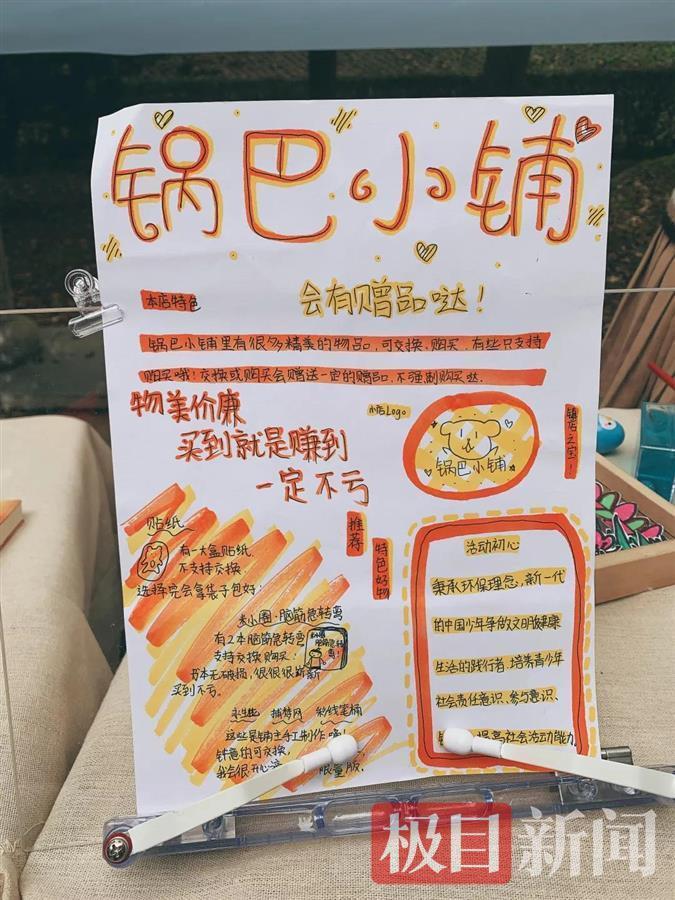 锅巴小铺
会有赠品哒！
本店特色
锅巴小铺里有很多精美的物品，可交换、购买，有些只支持
购买哦！交换或购买会赠送一定的赠品，不强制购买哒.
物美价廉
买到就是赚到
一定不亏
小店Logo
锅巴小铺
镇店之宝！
推荐
特色好物
贴纸
有一大盒贴纸.
不支持交换
选择完会拿袋子包好！
脑筋急转弯
有2本脑筋急转弯
支持交换、购买！
书本无破损，很很很崭新
买到不亏.
捕梦网
这些是铺主手工制作
可交换，
我会很开心
限量版.
活动初心
秉承环保理念，新一代
的中国少年争做文明健康
生活的践行者，培养青少年
社会责任意识、参与意识、
提高社会活动能力
极目新闻